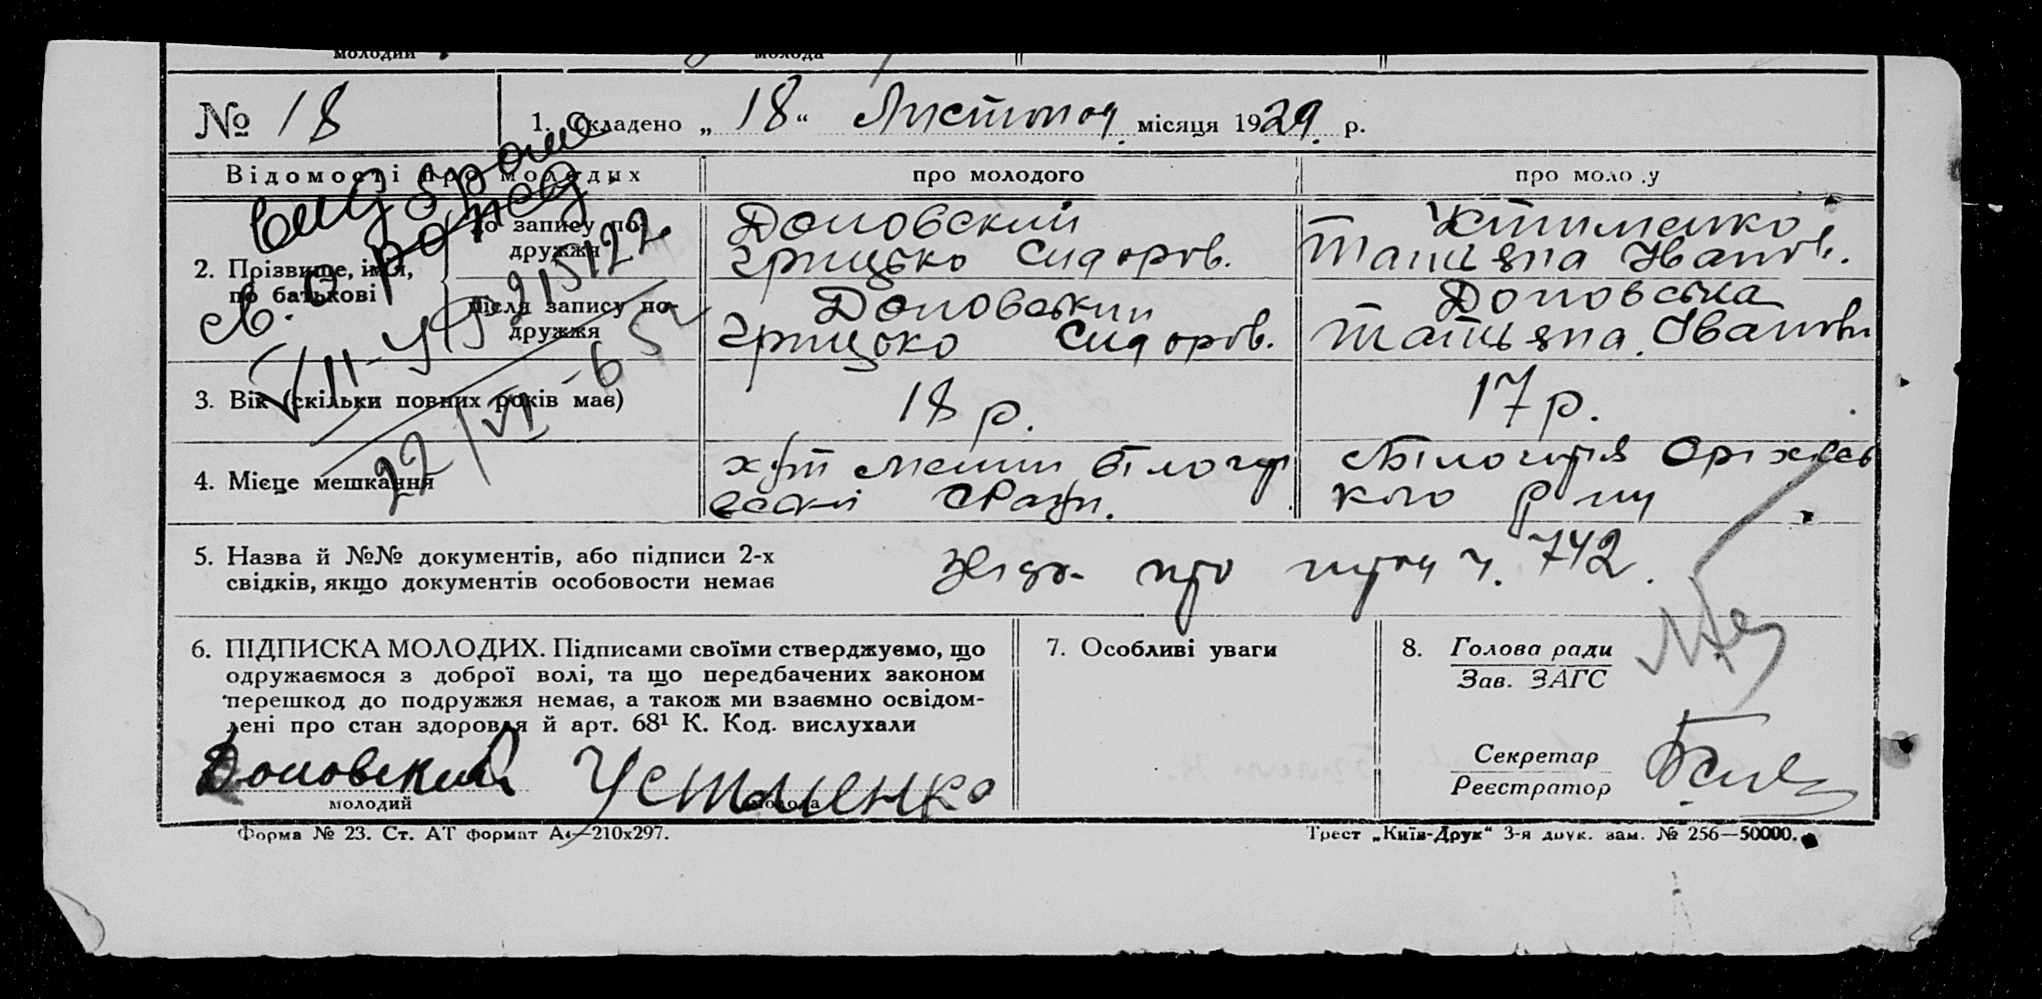 молодий
молода
№ 18
1. Складено „ 18 “ Листопад місяця 1929 р.
Відомості про молодих
про молодого
про молоду
2. Прізвище, ім'я, по батькові
до запису по-
дружжя
Доповский
Грицько Сидоров.
Устименко
Татьяна Іванов.
після запису по-
дружжя
Доповський
Грицько Сидоров.
Доповська
Татьяна Іванов
3. Вік (скільки повних років має)
18 р.
17 р.
4. Місце мешкання
22/VI-65
5. Назва й №№ документів, або підписи 2-х
свідків, якщо документів особовости немає
про ч. 742.
6. ПІДПИСКА МОЛОДИХ. Підписами своїми стверджуємо, що
одружаємося з доброї волі, та що передбачених законом
перешкод до подружжя немає, а також ми взаємно освідом-
лені про стан здоровля й арт. 68¹ К. Код. вислухали
Доповский Устименко
молодий
молода
7. Особливі уваги
8. Голова ради
Зав. ЗАГС
Секретар
Реєстратор
Форма № 23. Ст. АТ формат А4—210х297.
Трест „Київ-Друк“ 3-я друк. зам. № 256—50000.